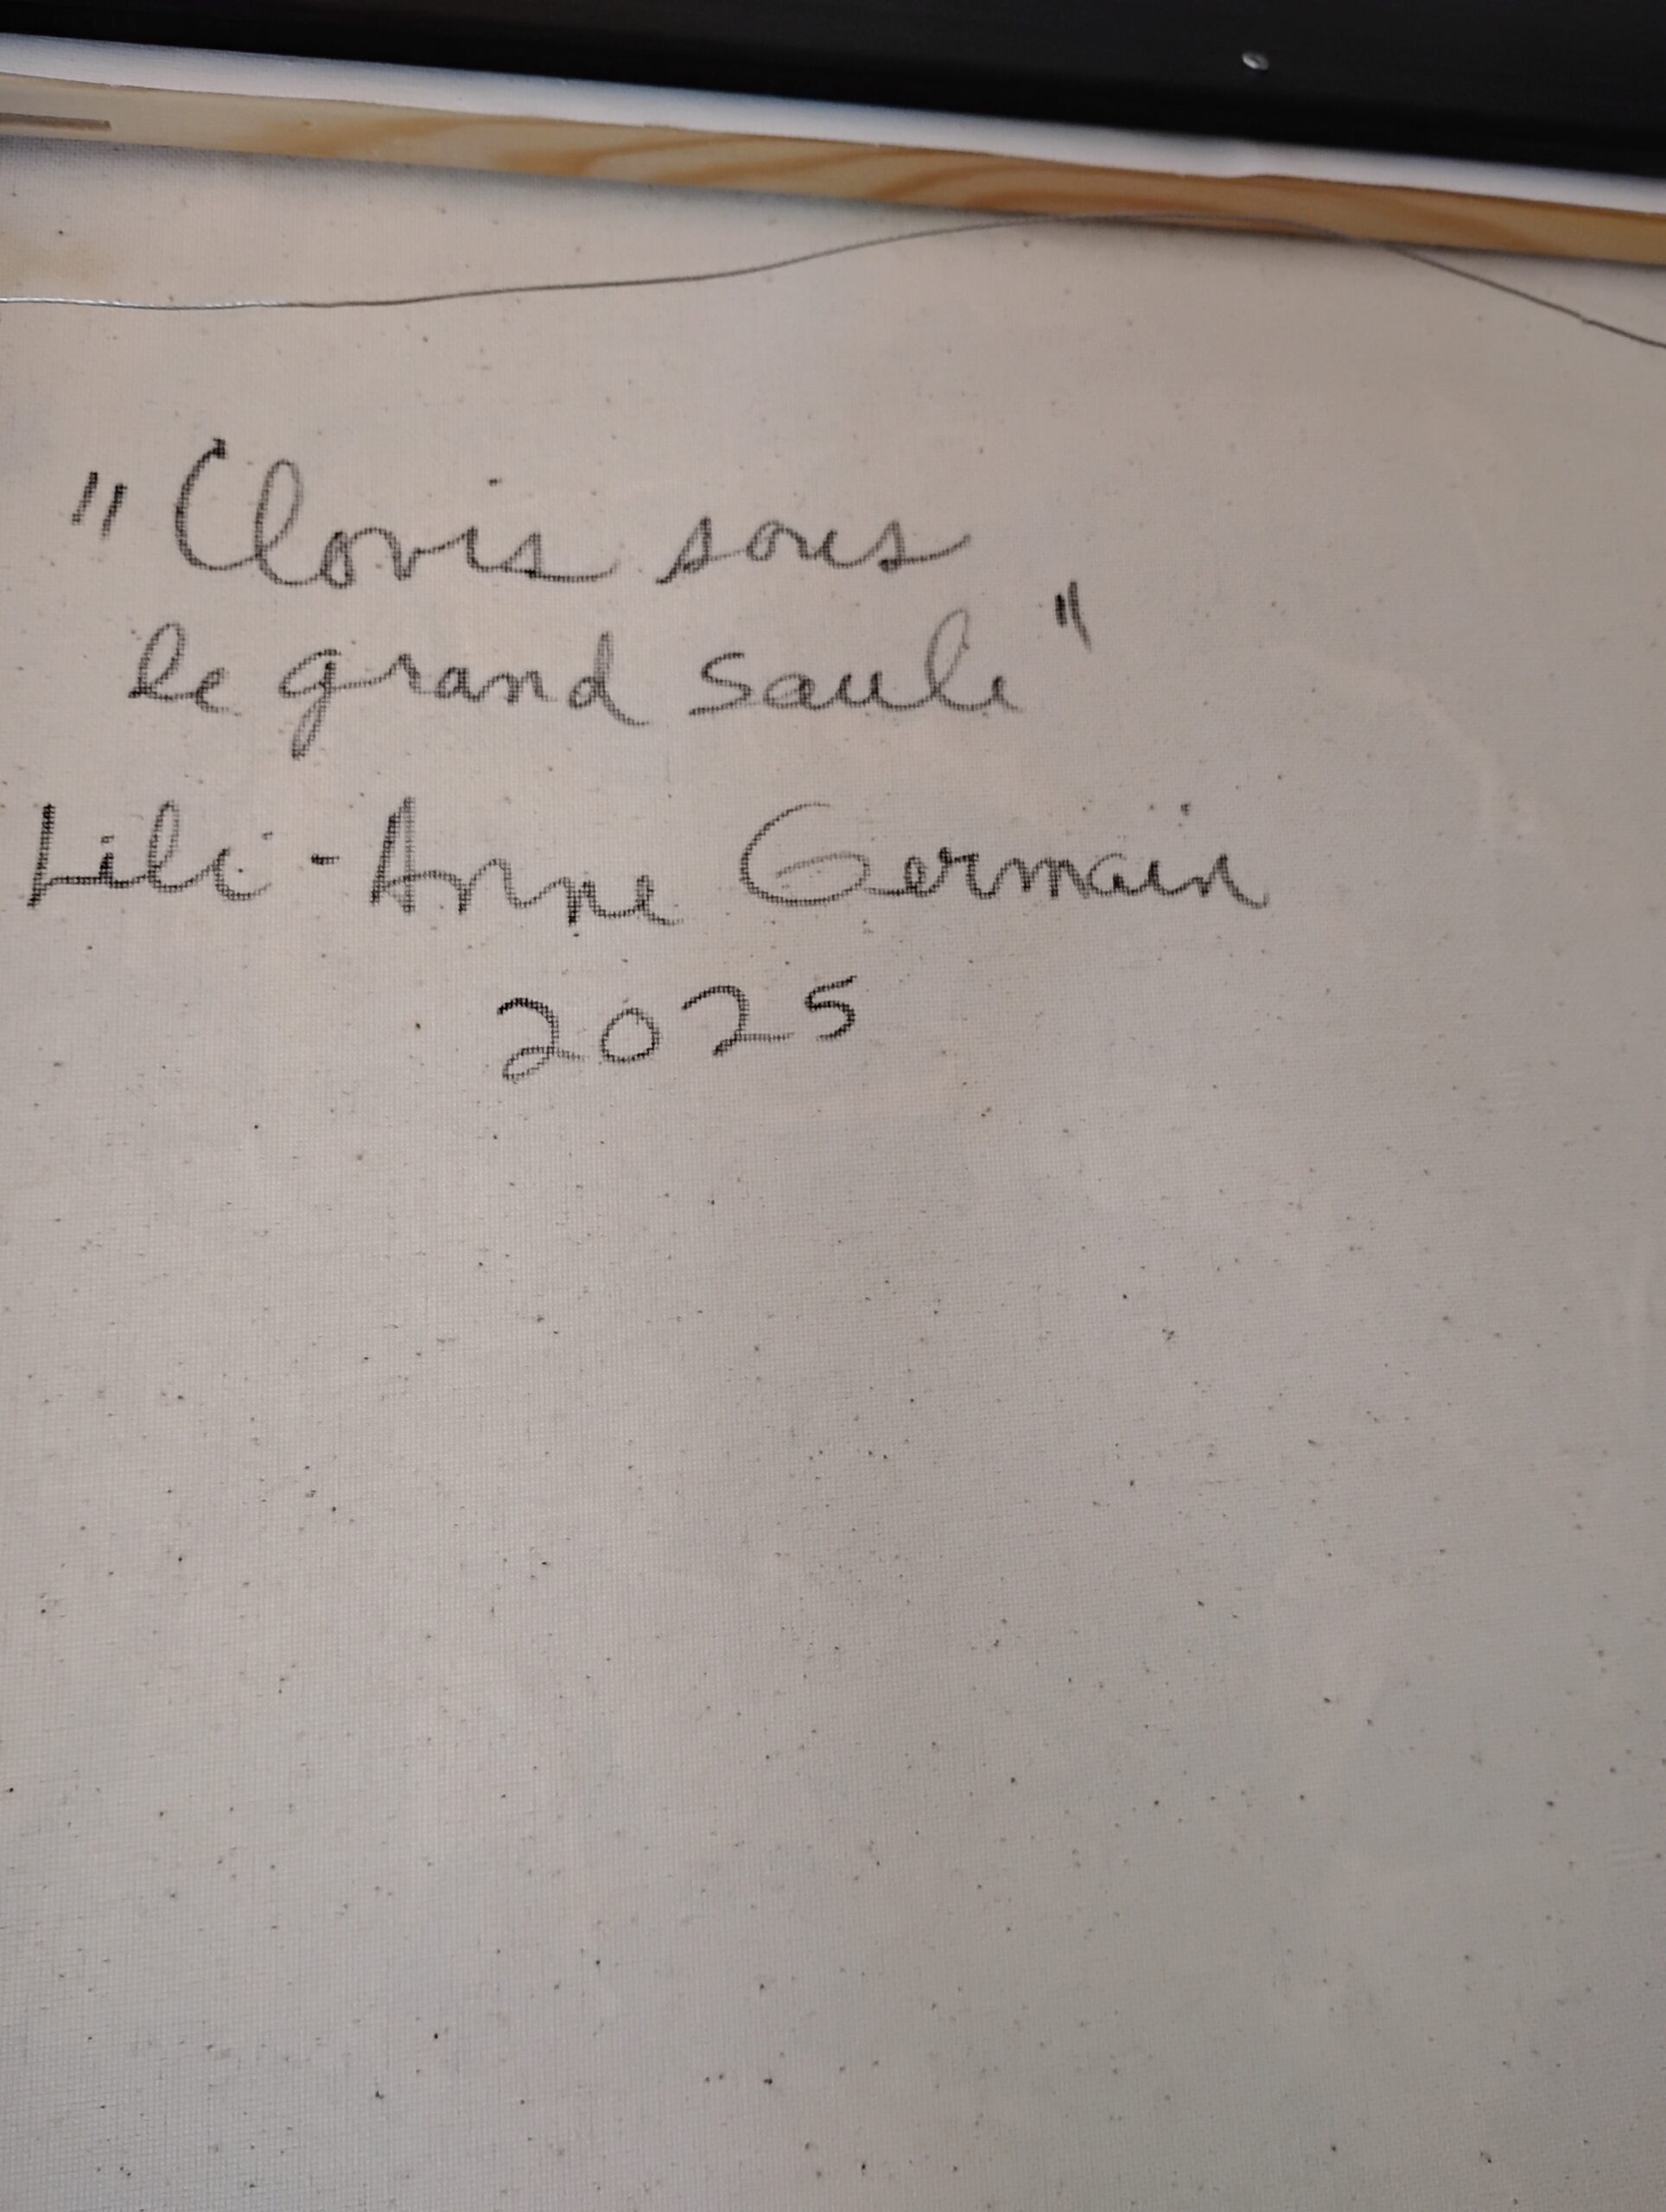 "Clovis sous
le grand saule"
Lili-Anne Germain
2025